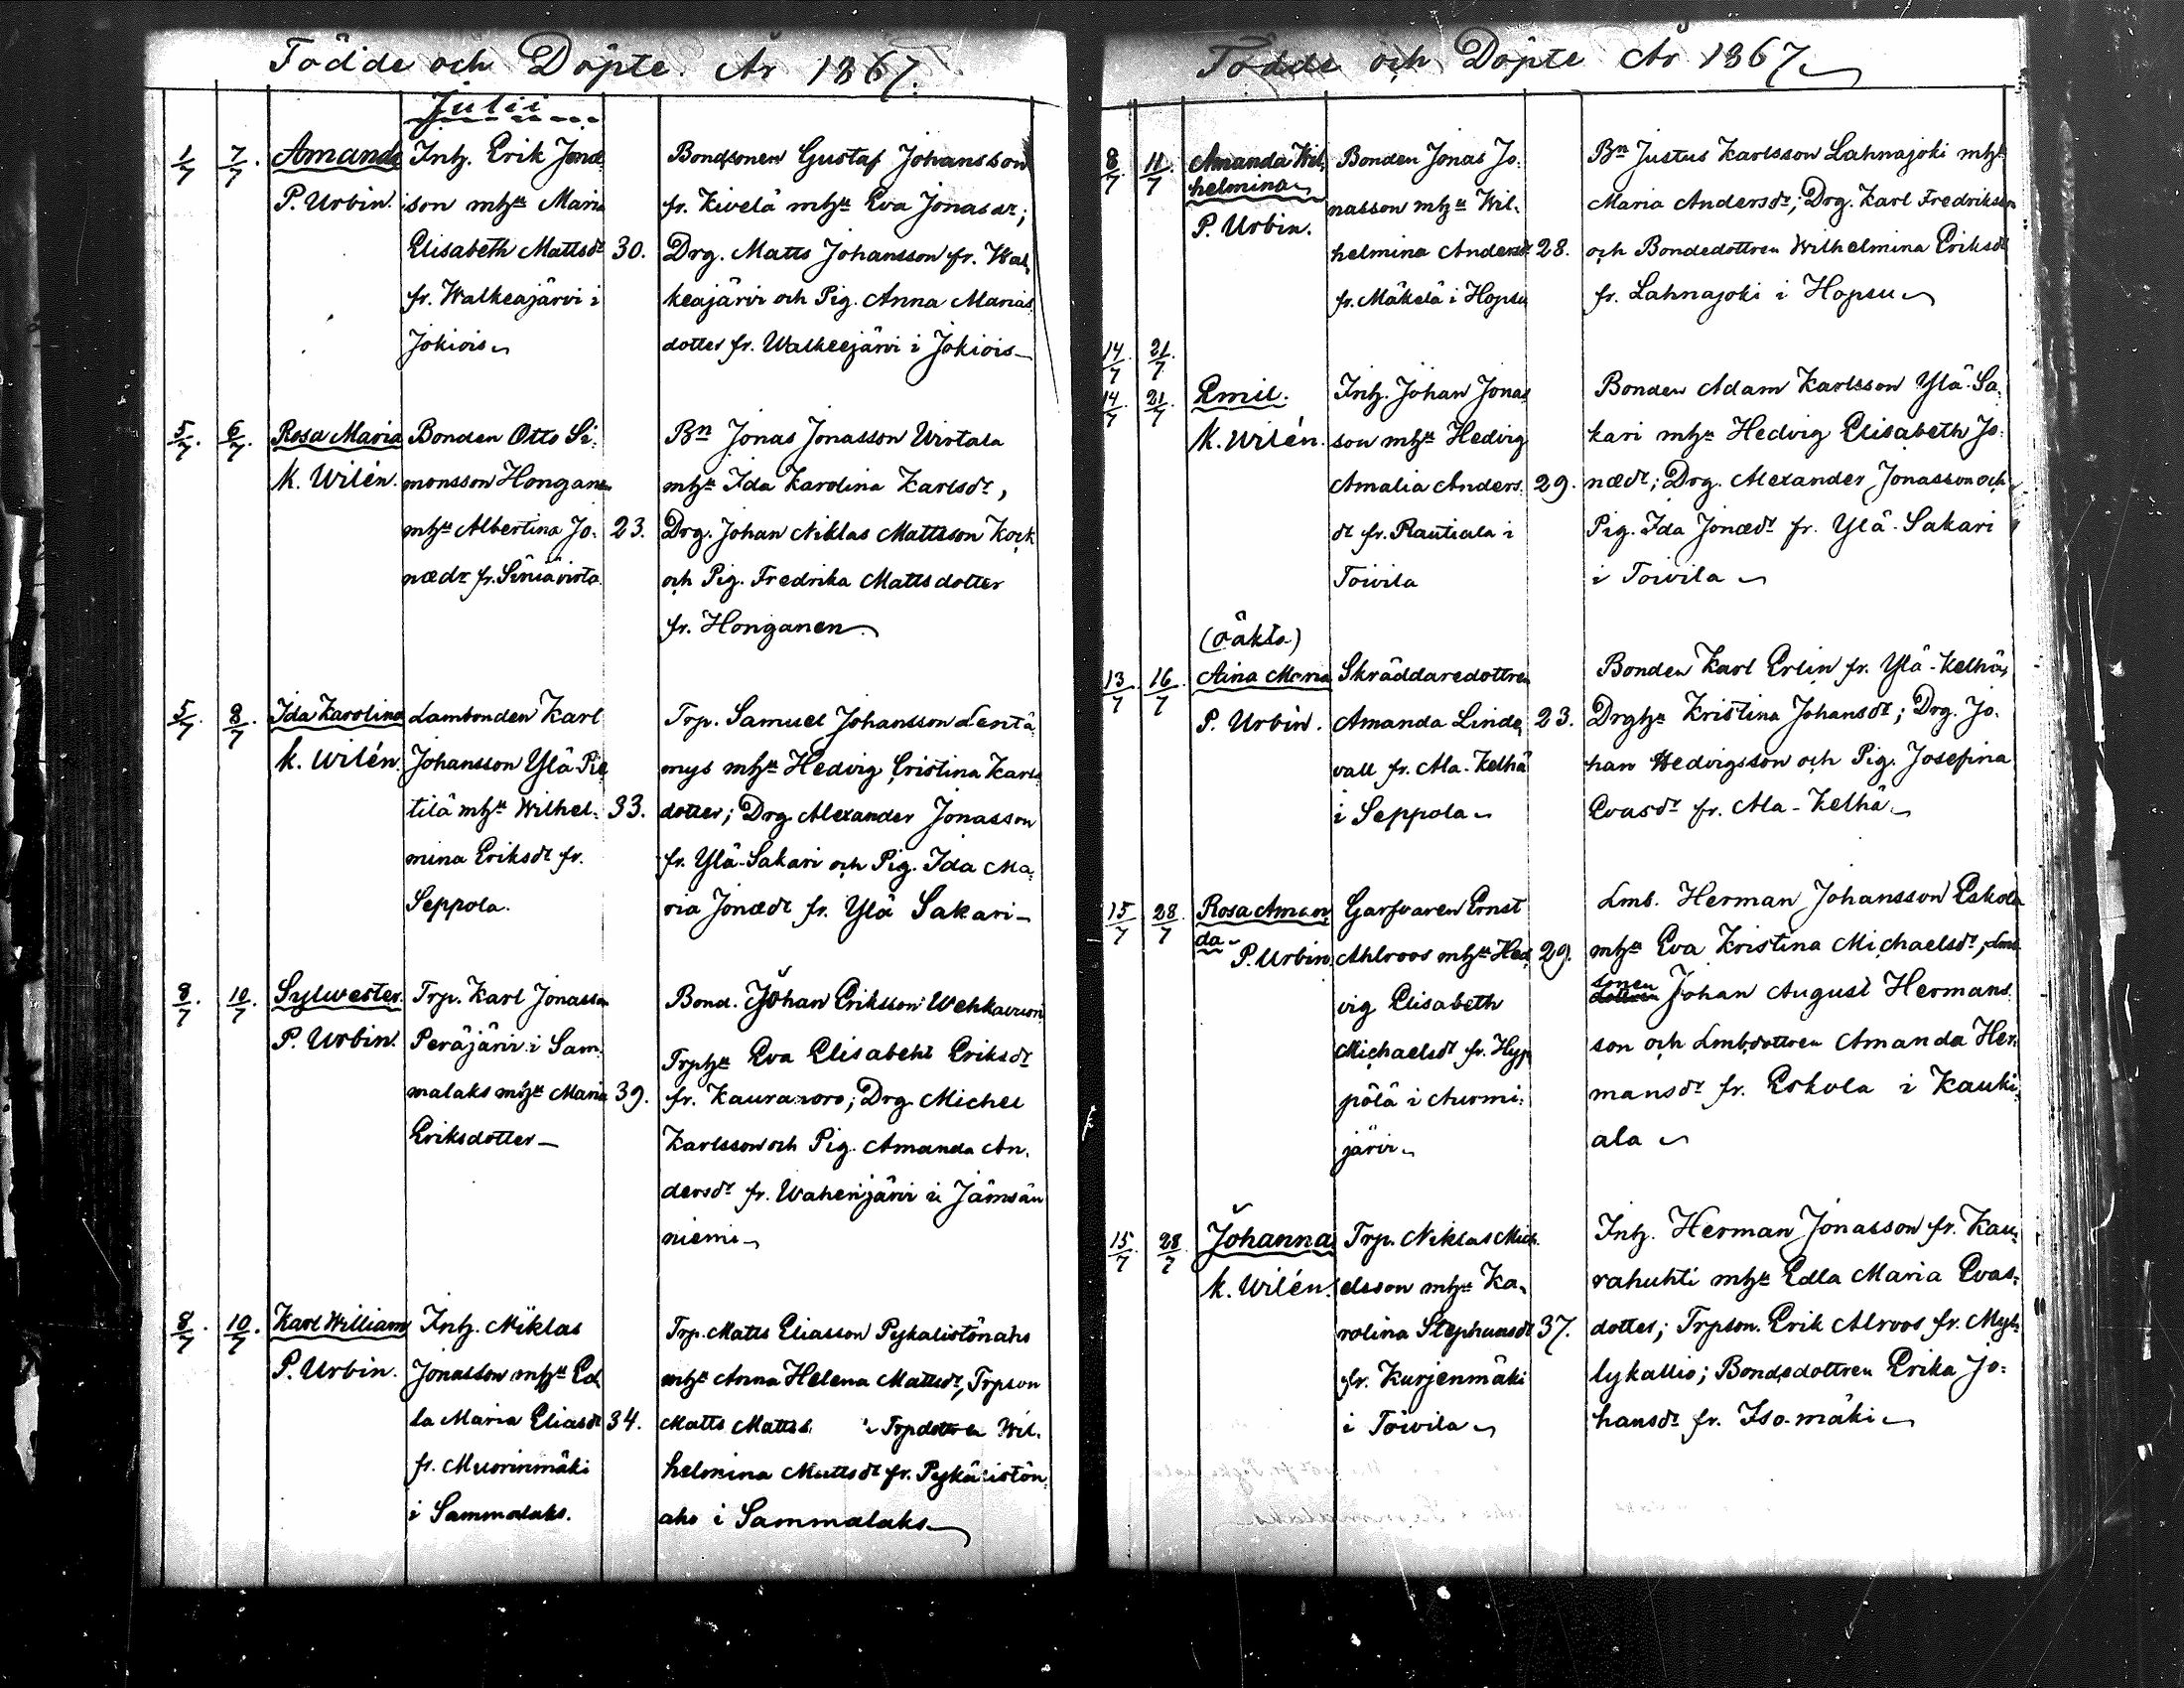 Födde och Döpte. År 1867.
Julii
1/7 7/7. Amanda Inh. Erik Jona
P. Urbin. sson mhu Maria
Elisabeth Mattsdr 30.
fr. Walkeajärvi i
Jokiois
Bondsonen Gustaf Johansson
fr. Kivelä mhu Eva Jonasdr;
Drg. Matts Johansson fr. Wal
keajärvi och Pig. Anna Marias
dotter fr. Walkeejärvi i Jokiois
5/7. 6/7. Rosa Maria Bonden Otto Si:
K. Wilén. monsson Honganen
mhu Albertina Jo: 23.
nædr fr. Siniävirta
Bn Jonas Jonasson Wirtala
mhu Ida Karolina Karlsdr,
Drg. Johan Niklas Mattsson Kock
och Pig. Fredrika Mattsdotter
fr. Honganen
5/7. 8/7. Ida Karolina Lambonden Karl
K. Wilén. Johansson Ylä-Pie
tilä mhu Wilhel: 33.
mina Eriksdr fr.
Seppola.
Trp. Samuel Johansson Lentä
mys mhu Hedvig Cristina Karls
dotter; Drg. Alexander Jonasson
fr. Ylä-Sakari och Pig. Ida Ma:
ria Jonædr fr. Ylä Sakari
8/7. 10/7. Sylwester. Trp. Karl Jonasson
P. Urbin. Peräjärvi i Sam
malaks mhu Maria 39.
Eriksdotter
Bond. Johan Eriksson Wehkavuori
Trphu Eva Elisabeht Eriksdr
fr. Kauravuoro; Drg. Michel
Karlsson och Pig. Amanda An.
dersdr fr. Waherijärvi i Jämsän
niemi
8/7. 10/7. Karl William Inh. Niklas
P. Urbin. Jonasson mhu Ed
la Maria Eliasdr 34.
fr. Muorinmäki
i Sammalaks.
Trp. Matts Eliasson Pykälistönaho
mhu Anna Helena Mattsdr, Trpson
Matts Mattss. Trpdottren Wil.
helmina Mattsdr fr. Pykälistön
aho i Sammalaks
Födde och Döpte År 1867
8/7. 11/7. Amanda Wil
helmina
P. Urbin.
Bonden Jonas Jo:
nasson mhu Wil.
helmina Andersdr 28.
fr. Mäkelä i Hopsu
Bn Justus Karlsson Lahnajoki mhu
Maria Andersdr; Drg. Karl Fredriksson
och Bondedottren Wilhelmina Eriksdr
fr. Lahnajoki i Hopsu
14/7. 21/7.
14/7. 21/7. Emil. Inh. Johan Jonas
K. Wilén. son mhu Hedvig
Amalia Anders. 29.
dr fr. Rautiala i
Toivila
Bonden Adam Karlsson Ylä-Sa
kari mhu Hedvig Elisabeth Jo:
nædr; Drg. Alexander Jonasson och
Pig. Ida Jonædr fr. Ylä-Sakari
i Toivila
(oäkta)
13/7. 16/7. Aina Maria Skräddaredottren
P. Urbin. Amanda Linde 23.
vall fr. Ala-Kelhä
i Seppola
Bonden Karl Erlin fr. Ylä-Kelhä,
Drghu Kristina Johansdr; Drg. Jo.
han Hedvigsson och Pig. Josefina
Evasdr fr. Ala-Kelhä
15/7 28/7. Rosa Aman
da
P. Urbin.
Garfvaren Ernst
Ahlroos mhu Hed 29.
vig Elisabeth
Michaelsdr fr. Hyp
pölä i Aurmi:
järvi
Lmb. Herman Johansson Eskola
mhu Eva Kristina Michaelsdr, Lmb
sonen
dottren Johan August Hermans
son och Lmbdottren Amanda Her.
mansdr fr. Eskola i Kauki
ala
15/7. 28/7. Johanna Trp. Niklas Mich
K. Wilén. elsson mhu Ka.
rolina Stephansdr 37.
fr. Kurjenmäki
i Toivila
Inh. Herman Jonasson fr. Kau
rahuhti mhu Edla Maria Evas
dotter; Trpson. Erik Alroos fr. Myl
lykallio; Bondedottren Erika Jo:
hansdr fr. Iso-mäki